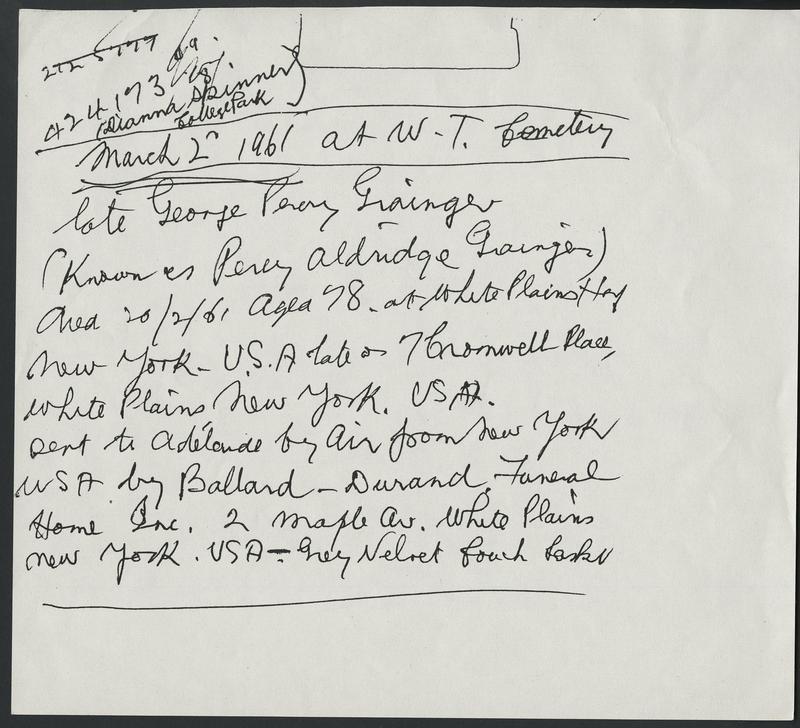 4241731
(Dianna Skinner)
College Park
March 2n 1961 at W-T. Cemetery
late George Percy Grainger
(Known as Percy Aldridge Grainger)
died 20/2/61 Aged 78. at White Plains
New York - U.S.A late of 7 Cromwell Place,
White Plains New York. USA.
sent to Adelaide by Air from New York
USA by Ballard - Durand. Funeral
Home Inc. 2 Maple Av. White Plains
New York. USA - Grey Velvet Couch